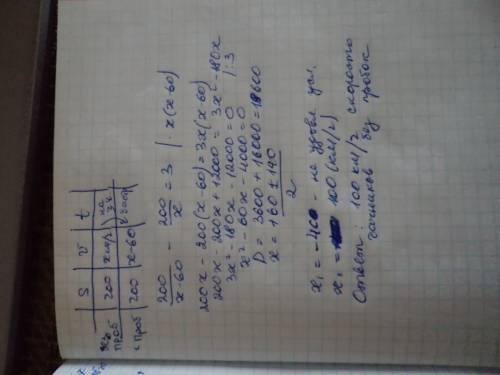 S | V | t
без проб | 200 | x км/ч | на 3ч
с проб | 200 | x-60
200/(x-60) - 200/x = 3 | · x(x-60)
200x - 200(x-60) = 3x(x-60)
200x - 200x + 12000 = 3x² - 180x
3x² - 180x - 12000 = 0 |:3
x² - 60x - 4000 = 0
D = 3600 + 16000 = 19600
x = (60 ± 140)/2
x₁ = -40 - не удовл. усл.
x₂ = 100 (км/ч)
Ответ: 100 км/ч скорость
без пробок